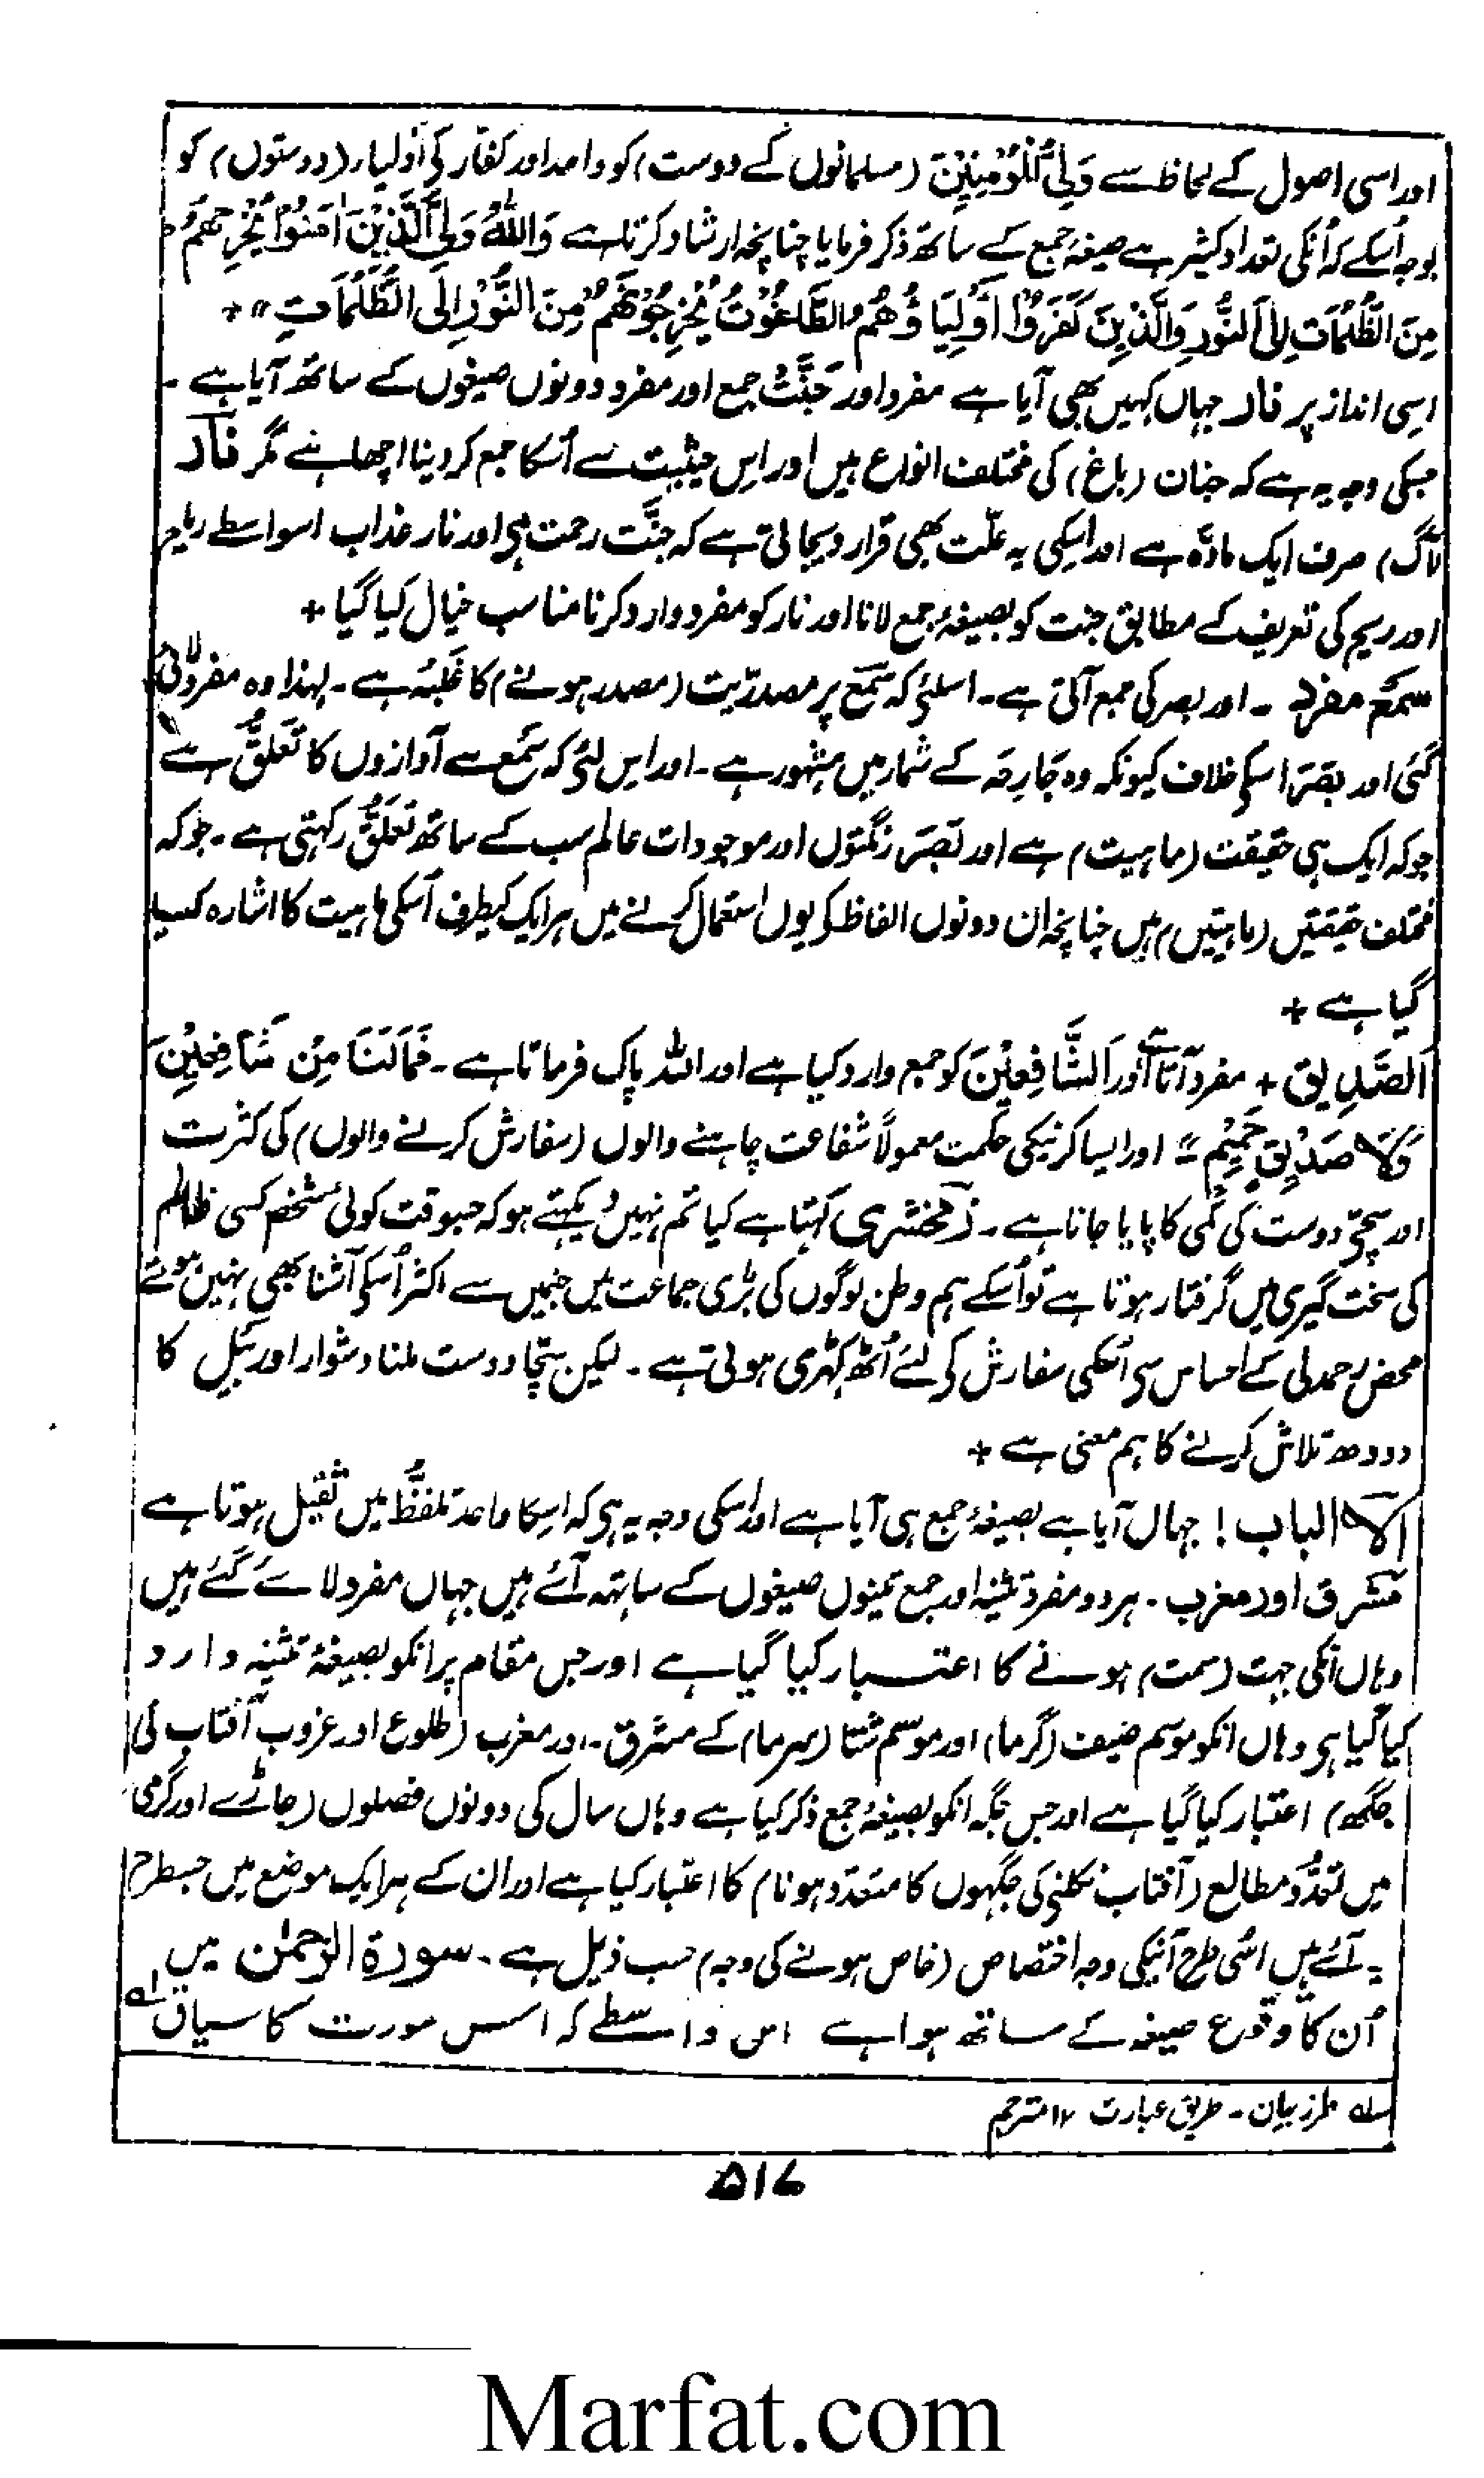 اور اسی اصول کے لحاظ سے وَلِیُّ الْمُؤْمِنِیْنَ (مسلمانوں کے دوست) کو واحد اور کفار کی اَوْلِیَاء (دوستوں) کو
بوجہ اُسکے کہ اُنکی تعداد کثیر ہے صیغۂ جمع کے ساتھ ذکر فرمایا چنانچہ ارشاد کرتا ہے وَاللّٰهُ وَلِیُّ الَّذِیْنَ اٰمَنُوْا یُخْرِجُهُمْ
مِنَ الظُّلُمَاتِ اِلَی النُّوْرِ وَالَّذِیْنَ کَفَرُوْا اَوْلِیَاؤُهُمُ الطَّاغُوْتُ یُخْرِجُوْنَهُمْ مِنَ النُّوْرِ اِلَی الظُّلُمَاتِ ،، +
اِسی انداز پر نار جہاں کہیں بھی آیا ہے مفرد اور جَنَّت جمع اور مفرد دونوں صیغوں کے ساتھ آیا ہے ۔
جسکی وجہ یہ ہے کہ جنان (باغ) کی مختلف انواع ہیں اور اِس حیثیت سے اُسکا جمع کر دینا اچھا ہے مگر نَار
(آگ) صرف ایک مادّہ ہے اور اسکی یہ علّت بھی قرار دیجاتی ہے کہ جنَّت رحمت ہی اور نار عذاب اسواسطے ریاح
اور ریح کی تعریف کے مطابق جنت کو بصیغۂ جمع لانا اور نار کو مفرد وارد کرنا مناسب خیال کیا گیا +
سَمْع مفرد ۔ اور بصر کی جمع آئی ہے ۔ اسلئے کہ سَمْع پر مصدرّیت (مصدر ہونے) کا غَلَبَہ ہے ۔ لہذا وہ مفرد لائی
گئی اور بَصَر اسکے خلاف کیونکہ وہ جَارِحَہ کے شمار میں مشہور ہے ۔ اور اس لئے کہ سَمْع سے آوازوں کا تَعلُّق ہے
جوکہ ایک ہی حقیقت (ماہیت) ہے اور بَصَر رنگتوں اور موجودات عالم سب کے ساتھ تَعَلُّق رکہتی ہے ۔ جوکہ
مختلف حقیقتیں (ماہیتیں) ہیں چنانچہ ان دونوں الفاظ کو یوں استعمال کرنے میں ہر ایک کیطرف اُسکی ماہیت کا اشارہ کیا
گیا ہے +
اَلصَّدِیق + مفرد آتا ہے اور اَلشَّافِعِیْنَ کو جمع وارد کیا ہے اور اللہ پاک فرماتا ہے ۔ فَمَالَنَا مِنْ شَافِعِیْنَ
وَلَا صَدِیْقٍ حَمِیْمٍ = اور ایسا کرنیکی حکمت معمولاً شفاعت چاہنے والوں (سفارش کرنے والوں) کی کثرت
اور سچّے دوست کی کمی کا پایا جانا ہے ۔ زمخشری کہتا ہے کیا تم نہیں دیکہتے ہو کہ جبوقت کوئی شخص کسی ظالم
کی سخت گیری میں گرفتار ہوتا ہے تو اُسکے ہم وطن لوگوں کی بڑی جماعت میں جنمیں سے اکثر اُسکے آشنا بھی نہیں ہوتے
محض رحمدلی کے احساس سے اُسکی سفارش کے لئے اُٹھ کہڑی ہوتی ہے ۔ لیکن سچّا دوست ملنا دشوار اور بَیل کا
دودھ تلاش کرنے کا ہم معنی ہے +
اَلاَلباب ! جہاں آیا ہے بصیغۂ جمع ہی آیا ہے اور اسکی وجہ یہ ہی کہ اسکا واحد تلفُّظ میں ثقیل ہوتا ہے
مشرق اور مغرب ۔ ہر دو مفرد تثنیہ اور جمع تینوں صیغوں کے ساتہہ آئے ہیں جہاں مفرد لائے گئے ہیں
وہاں اُنکی جہت (سمت) ہونے کا اعتبار کیا گیا ہے اور جس مقام پر انکو بصیغۂ تثنیہ وارد
کیا گیا ہی وہاں انکو موسم ضیف (گرما) اور موسم شتا (سرما) کے مشرق ۔ اور مغرب (طلوع اور غروب آفتاب کی
جگہ) اعتبار کیا گیا ہے اور جس جگہ انکو بصیغۂ جمع ذکر کیا ہے وہاں سال کی دونوں فصلوں (جاڑے اور گرمی)
میں تعدُّد مطالع (آفتاب نکلنے کی جگہوں کا متعدد ہونا) کا اعتبار کیا ہے اور ان کے ہر ایک موضع میں جسطرح
آئے ہیں اُسی طرح آنیکی وجہ اختصاص (خاص ہونے کی وجہ) حسب ذیل ہے ۔ سورۃ الرّحمٰن میں
اُن کا وقوع صیغہ کے ساتھ ہوا ہے اس واسطے کہ اس سورت کا سیاق لہ
لہ طرز بیان ۔ طریق عبارت ۱۲ مترجم
۵۱۷
Marfat.com